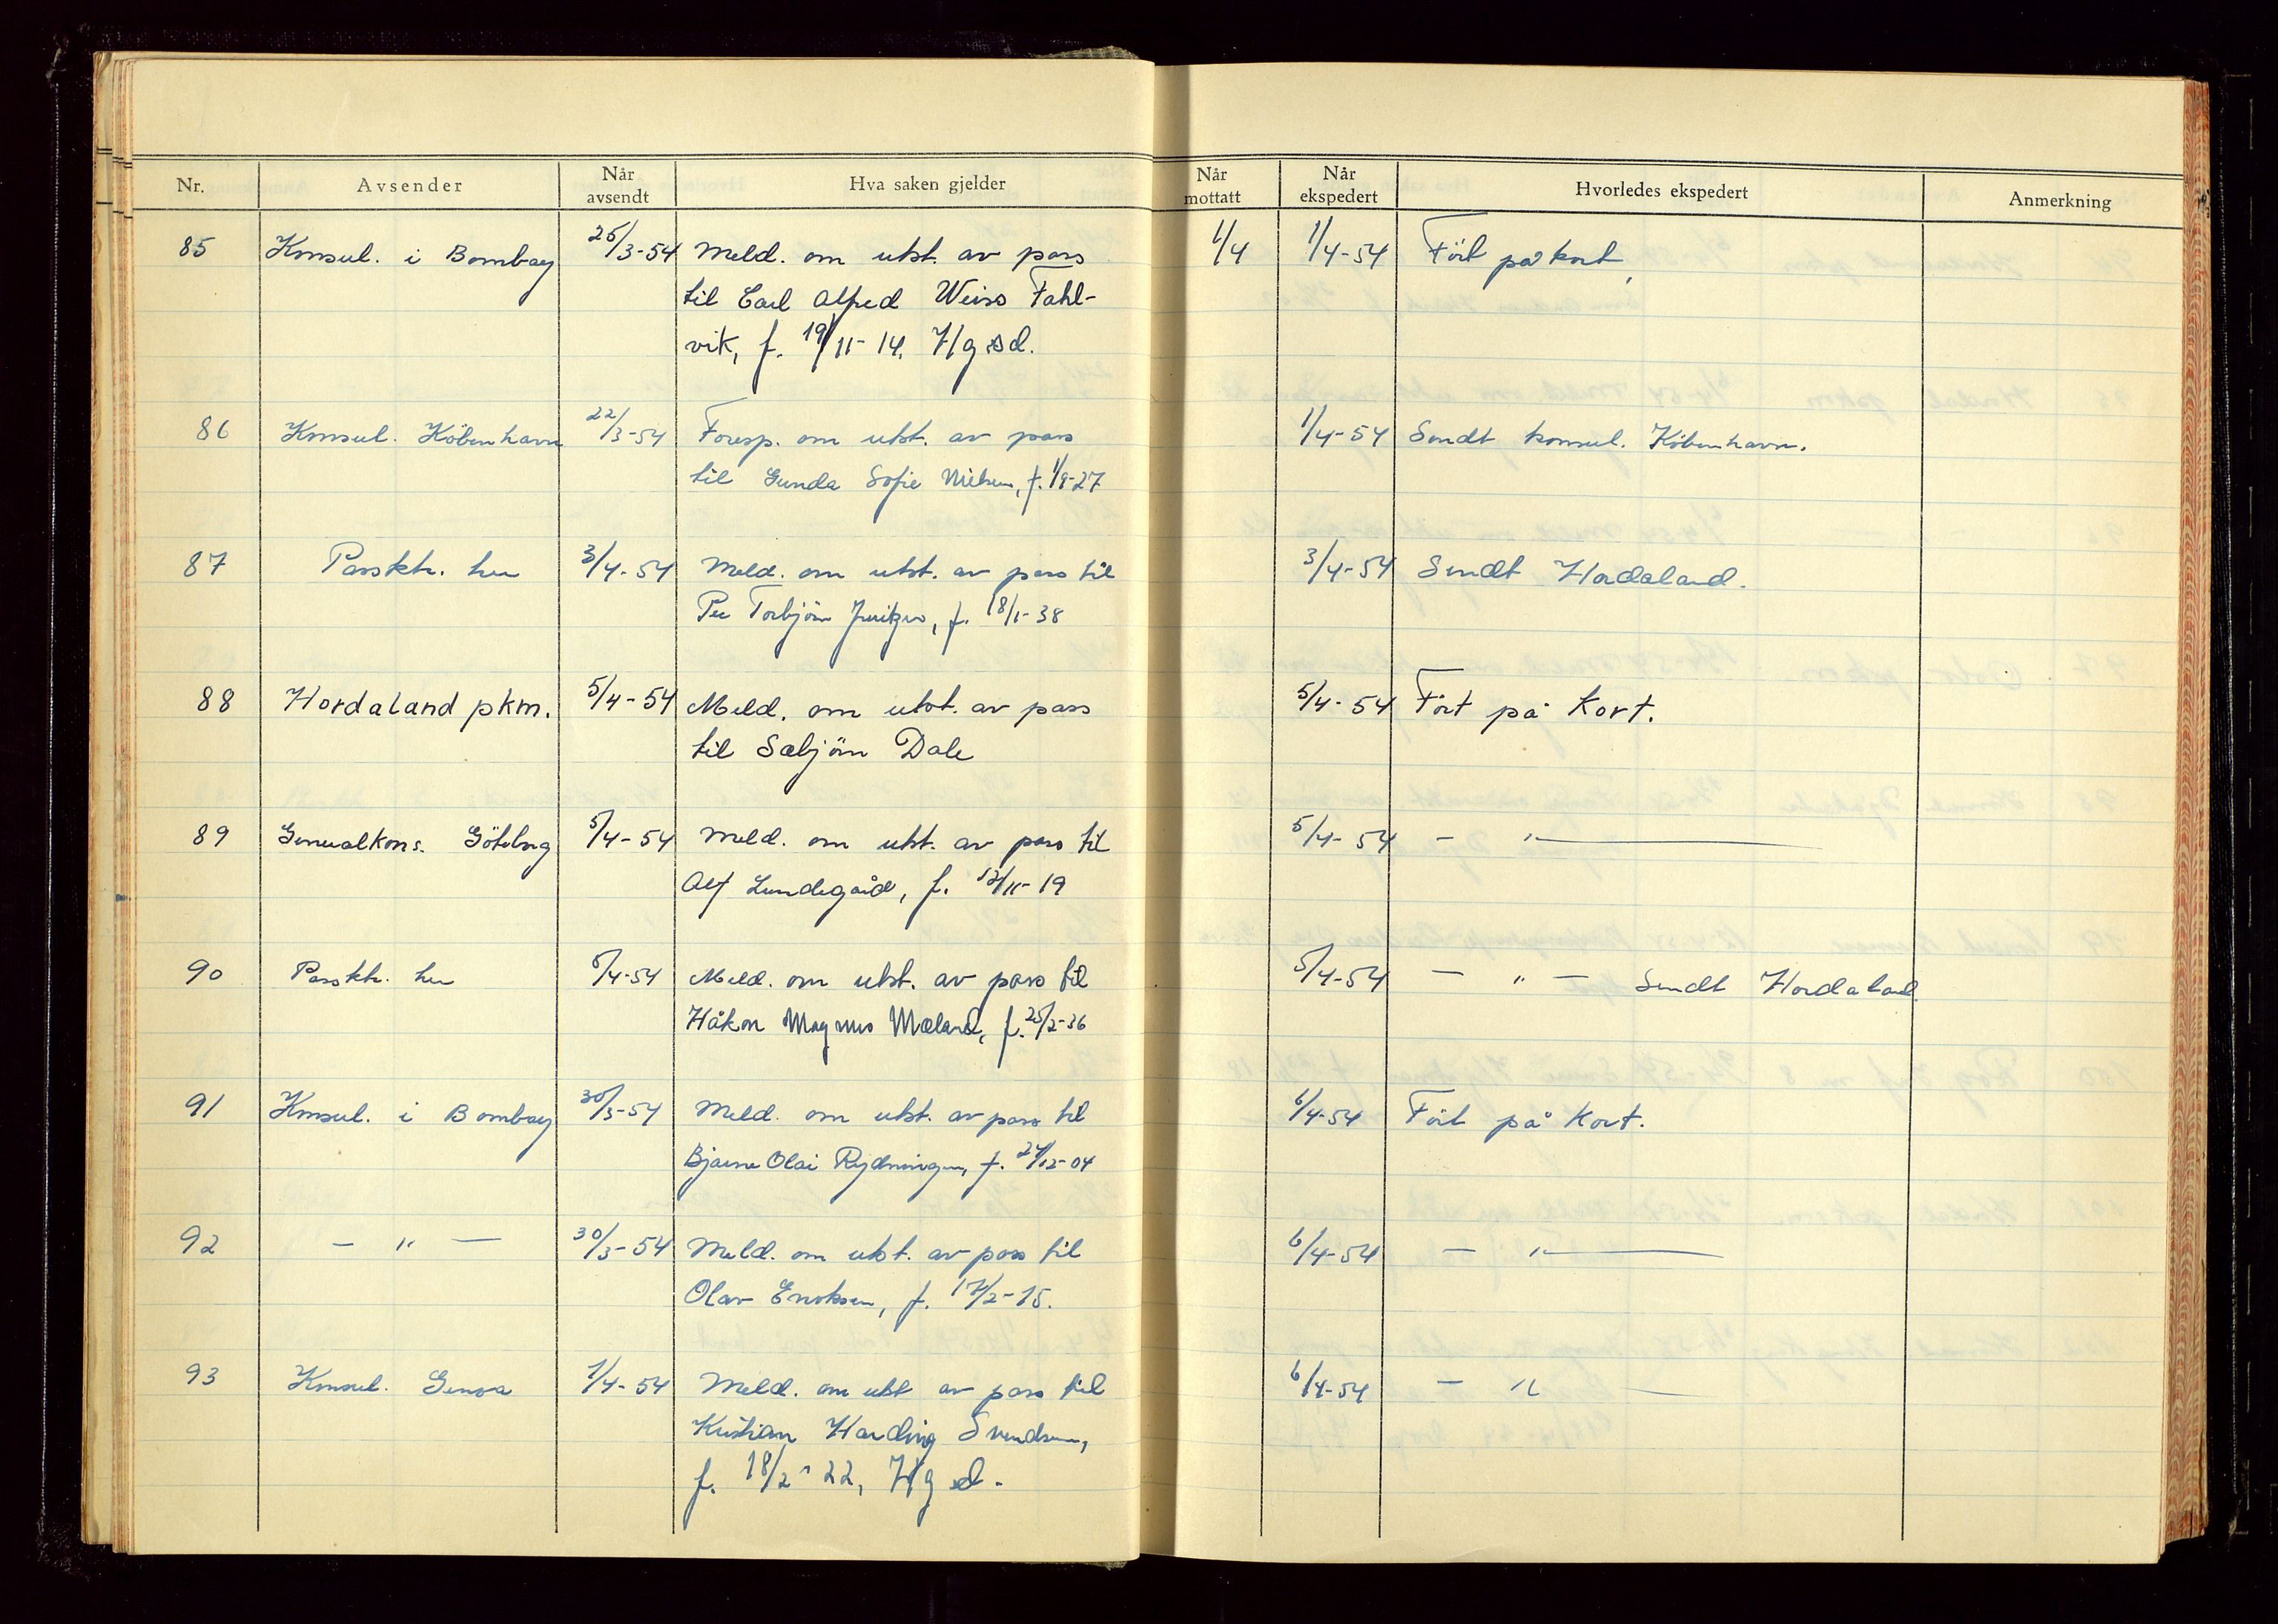 Nr. Avsender Når avsendt Hva saken gjelder Når mottatt Når ekspedert Hvorledes ekspedert Anmerkning
85 Konsul. i Bombay 25/3-54 Meld. om utst. av pass 1/4 1/4-54 Ført på kort
til Carl Alfred Weiss Fahl-
vik, f. 19/11-14. Hgsd.
86 Konsul. København 22/3-54 Foresp. om utst. av pass 1/4-54 Sendt konsul. København.
til Gunda Sofie Nilsen, f. 1/9-27
87 Passktr. her 3/4-54 Meld. om utst. av pass til 3/4-54 Sendt Hordaland.
Per Torbjörn f. 18/1-38
88 Hordaland pkm. 5/4-54 Meld. om utst. av pass 5/4-54 Ført på Kort.
til Sæbjörn Dale
89 Generalkons. Göteborg 5/4-54 Meld. om utst. av pass til 5/4-54 - " -
Alf Lundegård, f. 12/11-19
90 Passktr. her 5/4-54 Meld. om utst. av pass til 5/4-54 - " - Sendt Hordaland
Håkon Magnus Mæland, f. 25/2-36
91 Konsul. i Bombay 30/3-54 Meld. om utst. av pass til 6/4-54 Ført på Kort.
Bjarne Olai Rydningen, f. 24/12-04
92 - " - 30/3-54 Meld. om utst. av pass til 6/4-54 - " -
Olav Enoksen, f. 17/2-15.
93 Konsul. Genova 1/4-54 Meld. om utst av pass til 6/4-54 - " -
Kristian Harding Svendsen,
f. 18/2-22, Hgsd.